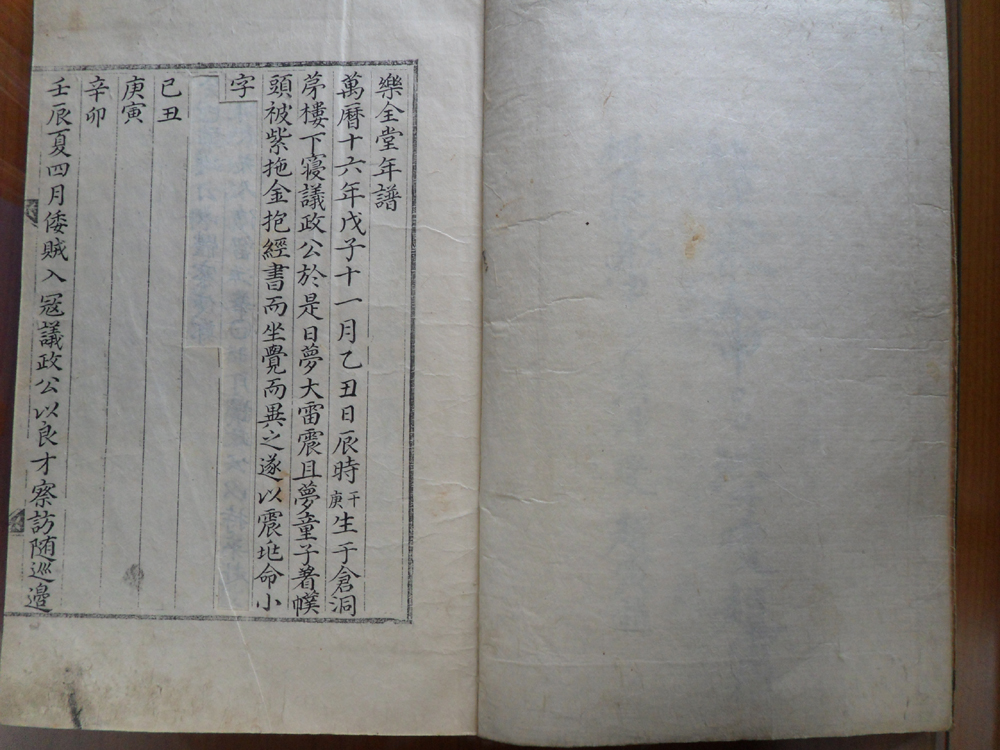 樂全堂年譜
萬曆十六年戊子十一月乙丑日辰時庚干生于倉洞
茅樓下寢議政公於是日夢大雷震且夢童子着幞
頭被紫拖金抱經書而坐覺而異之遂以震虎命小
字
己丑
庚寅
辛卯
壬辰夏四月倭賊入冦議政公以良才察訪随巡邊